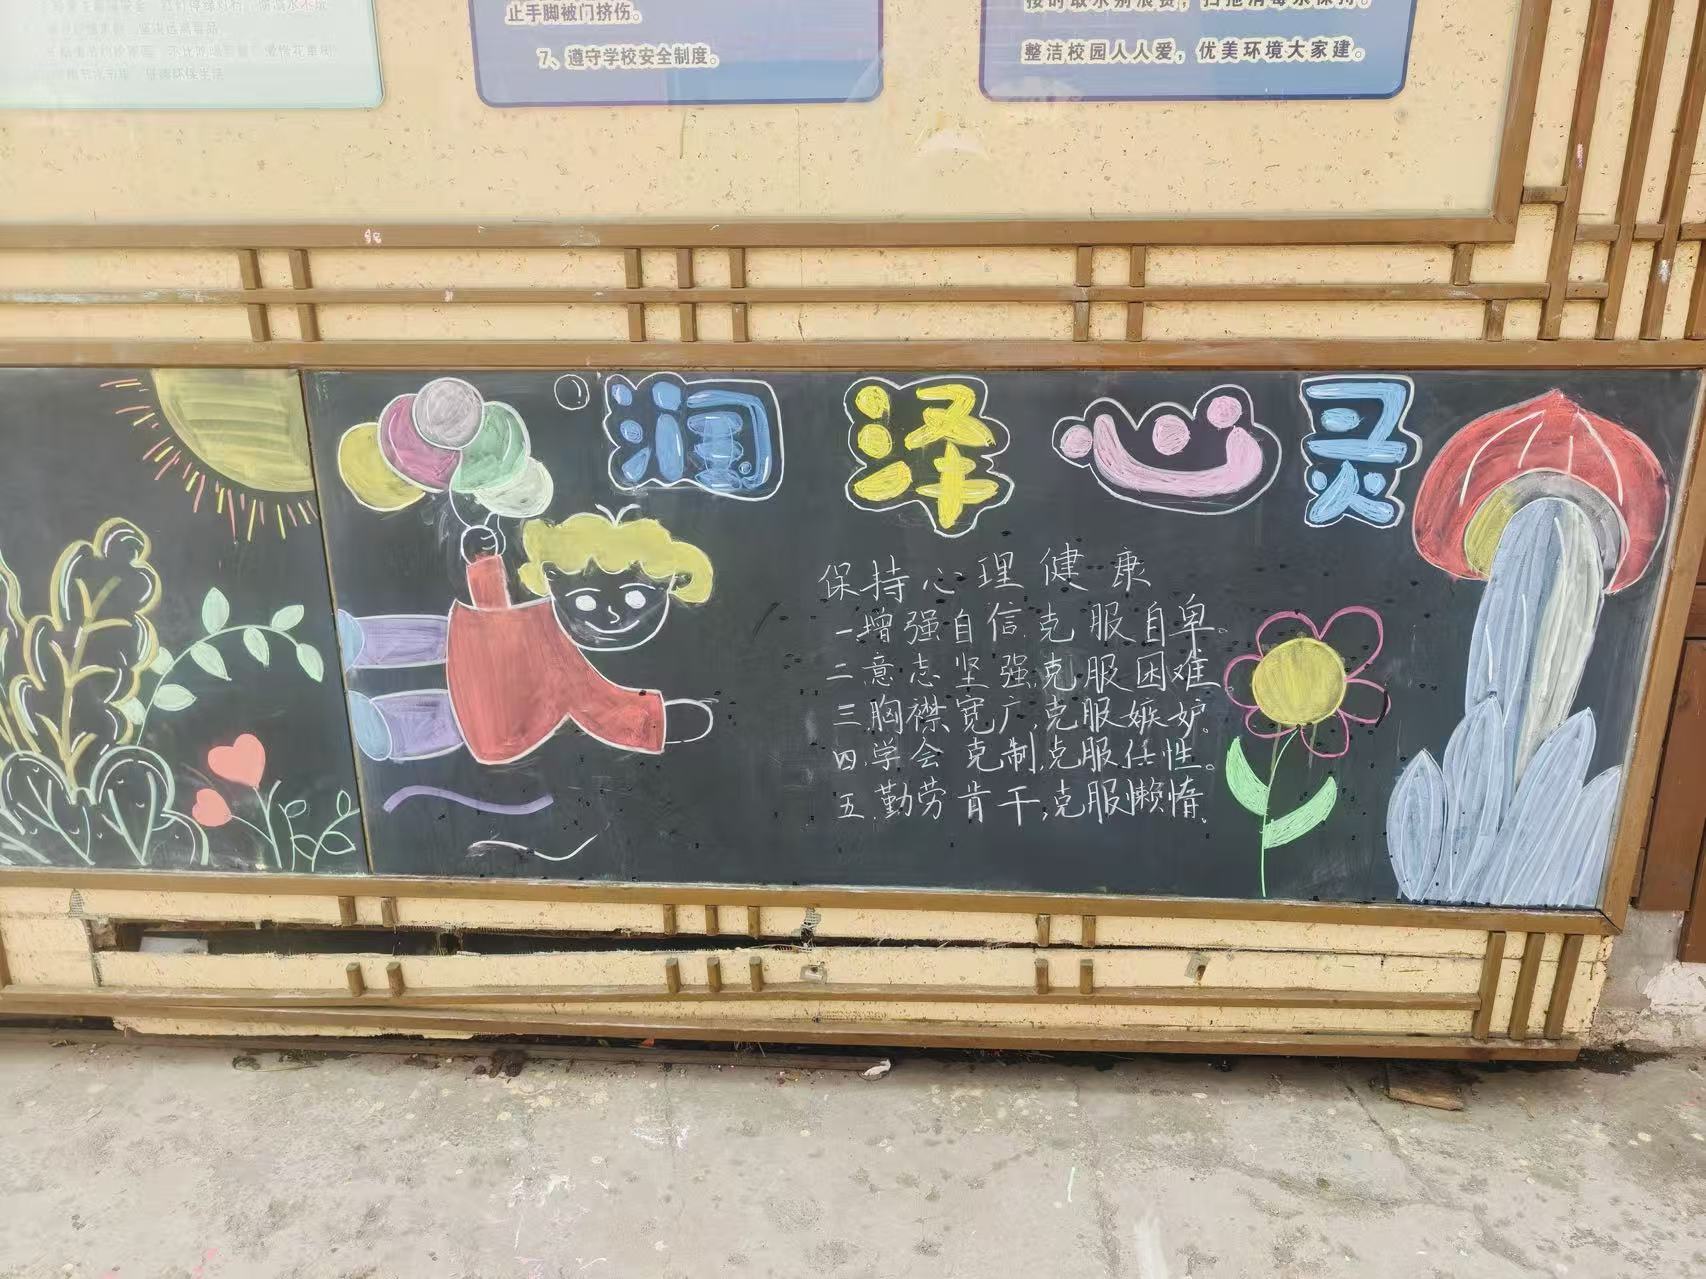 止手脚被门挤伤。
7、遵守学校安全制度。
整洁校园人人爱，优美环境大家建。
润泽心灵
保持心理健康
一增强自信克服自卑。
二意志坚强克服困难
三胸襟宽广,克服嫉妒。
四.学会克制,克服任性。
五.勤劳肯干,克服懒惰。